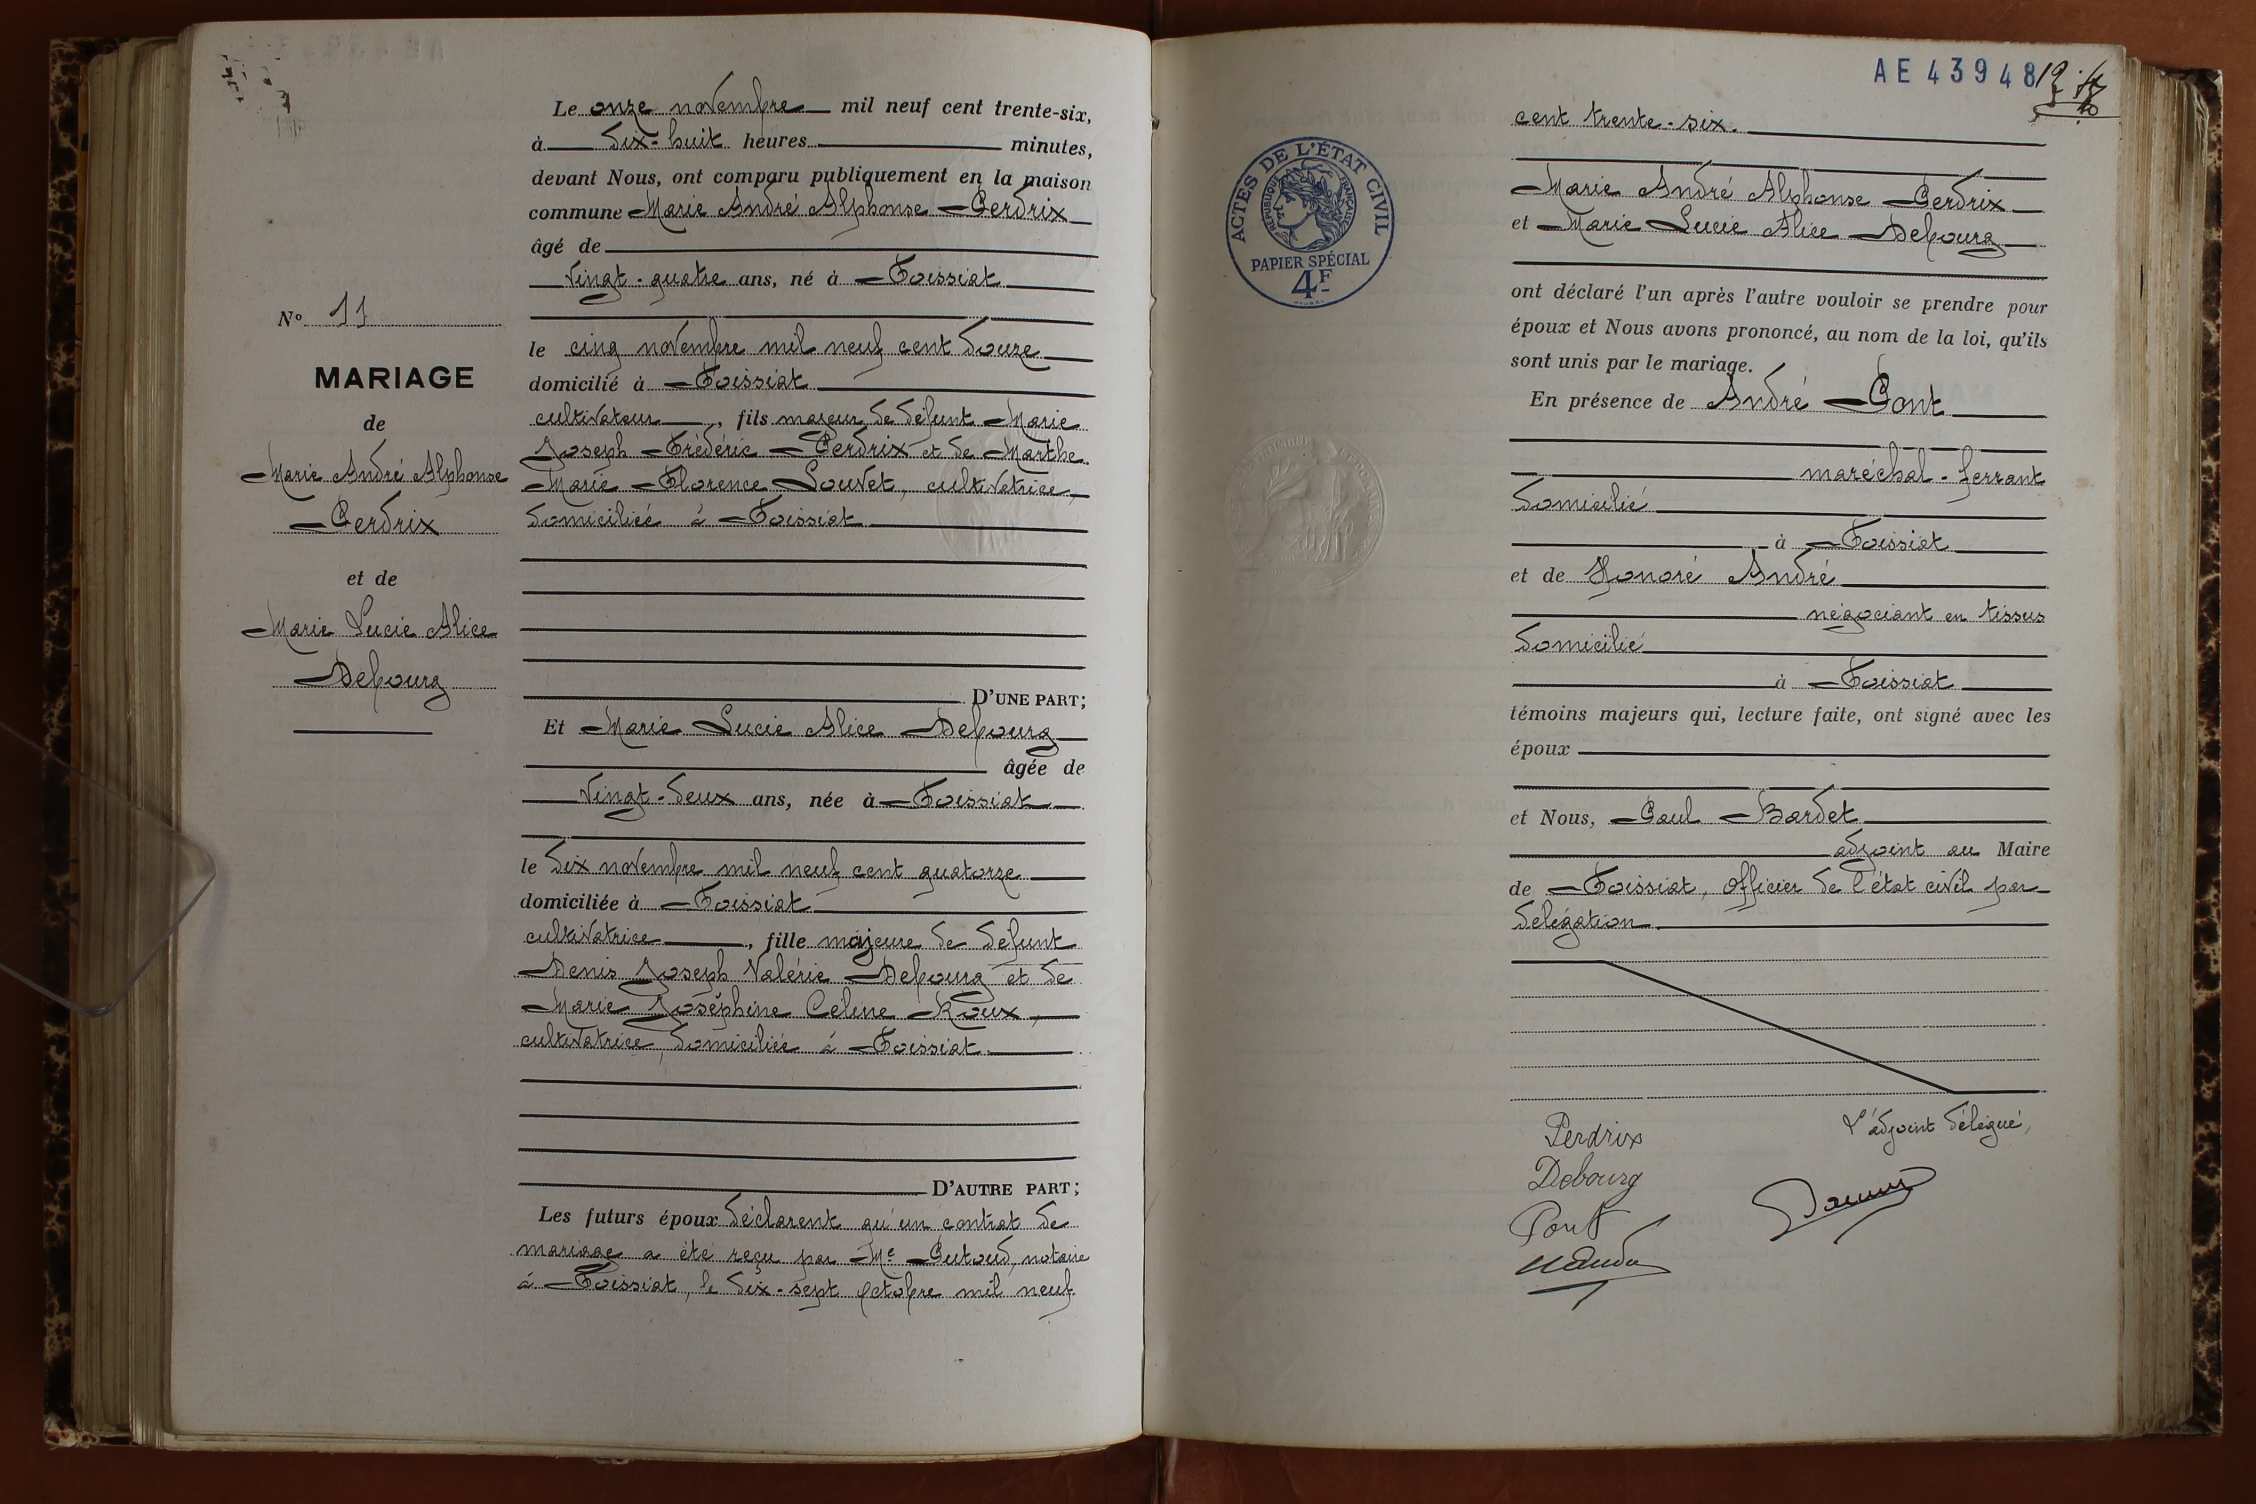 Le onze novembre mil neuf cent trente-six,
à dix-huit heures minutes,
devant Nous, ont comparu publiquement en la maison
commune Marie André Alphonse Perdrix
âgé de
vingt-quatre ans, né à Toissiat
le cinq novembre mil neuf cent douze
domicilié à Toissiat
cultivateur, fils majeur de défunt Marie
Joseph Frédéric Perdrix et de Marthe
Marie Florence Louvet, cultivatrice,
domiciliée à Toissiat
D'UNE PART;
Et Marie Lucie Alice Debourg
âgée de
vingt-deux ans, née à Toissiat
le dix novembre mil neuf cent quatorze
domiciliée à Toissiat
cultivatrice, fille majeure de défunt
Denis Joseph Valérie Debourg et de
Marie Joséphine Celine Roux,
cultivatrice, domiciliée à Toissiat
D'AUTRE PART;
Les futurs époux déclarent qu'un contrat de
mariage a été reçu par Me Putoud, notaire
à Toissiat, le dix-sept octobre mil neuf
No 11
MARIAGE
de
Marie André Alphonse
Perdrix
et de
Marie Lucie Alice
Debourg
AE43948
cent trente-six.
Marie André Alphonse Perdrix
et Marie Lucie Alice Debourg
ont déclaré l'un après l'autre vouloir se prendre pour
époux et Nous avons prononcé, au nom de la loi, qu'ils
sont unis par le mariage.
En présence de André Pont
maréchal-ferrant
domicilié
à Toissiat
et de Honoré André
négociant en tissus
domicilié
à Toissiat
témoins majeurs qui, lecture faite, ont signé avec les
époux
et Nous, Paul Bardet
adjoint au Maire
de Toissiat, officier de l'état civil par
délégation.
Perdrix
Debourg
Pont
L'adjoint délégué,
ACTES DE L'ÉTAT CIVIL
RÉPUBLIQUE FRANÇAISE
PAPIER SPÉCIAL
4F